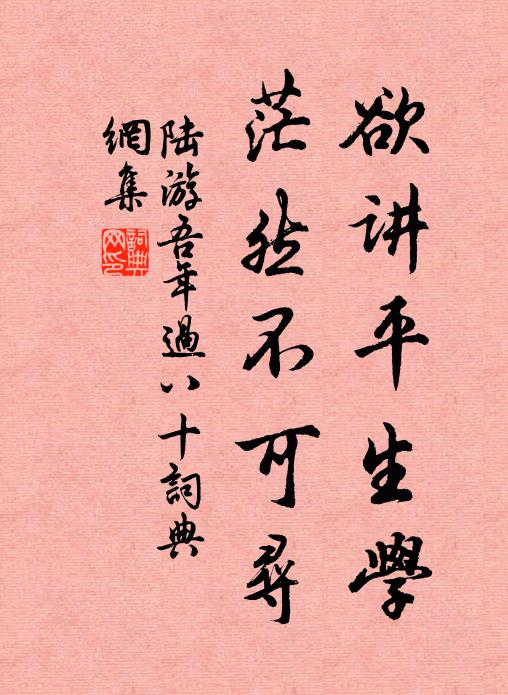 欲讲平生學
茫然不可尋
陆游吾年過八十詞典
網集
詞典
网印